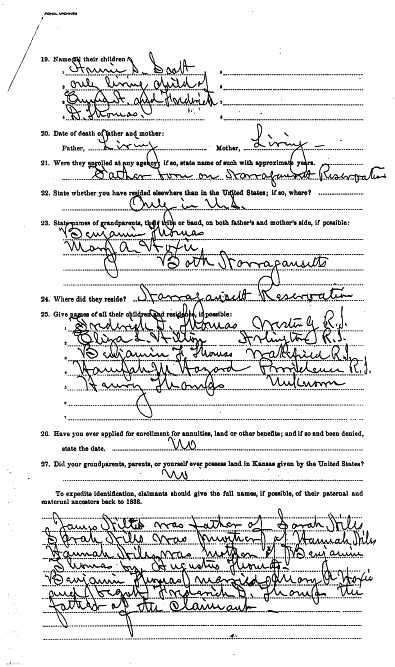 19. Name all their children:
1 Annie D. Scott 5
2 only living child of 6
3 Emma A. and Frederick 7
4 D. Thomas. 8
20. Date of death of father and mother:
Father, Living Mother, Living
21. Were they enrolled at any agency; if so, state name of such with approximate years.
Father born on Narragansett Reservation
22. State whether you have resided elsewhere than in the United States; if so, where?
Only in U.S.
23. State names of grandparents, their tribe or band, on both father's and mother's side, if possible:
Benjamin Thomas
Mary A. Hoxie
Both Narragansetts
24. Where did they reside? Narragansett Reservation
25. Give names of all their children and residence, if possible:
1 Frederick D. Thomas Westerly R.I.
2 Eliza L. Wilton Arlington R.I.
3 Benjamin F. Thomas Wakefield R.I.
4 Hannah M Hazard Providence R.I.
5 Henry Thomas Unknown
6
7
26. Have you ever applied for enrollment for annuities, land or other benefits; and if so and been denied,
state the date. No
27. Did your grandparents, parents, or yourself ever possess land in Kansas given by the United States?
No
To expedite identification, claimants should give the full names, if possible, of their paternal and
maternal ancestors back to 1838.
James Niles was father of Sarah Niles
Sarah Niles was mother of Hannah Niles
Hannah Niles was mother of Benjamin
Thomas by Augustus Thomas.
Benjamin Thomas married Mary A Hoxie
and begat Frederick D. Thomas the
father of the claimant